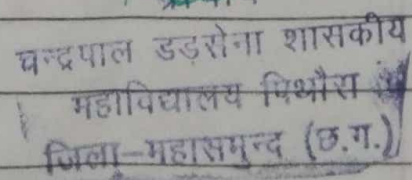 चन्द्रपाल डड़सेना शासकीय
महाविद्यालय पिथौरा
जिला-महासमुन्द (छ.ग.)